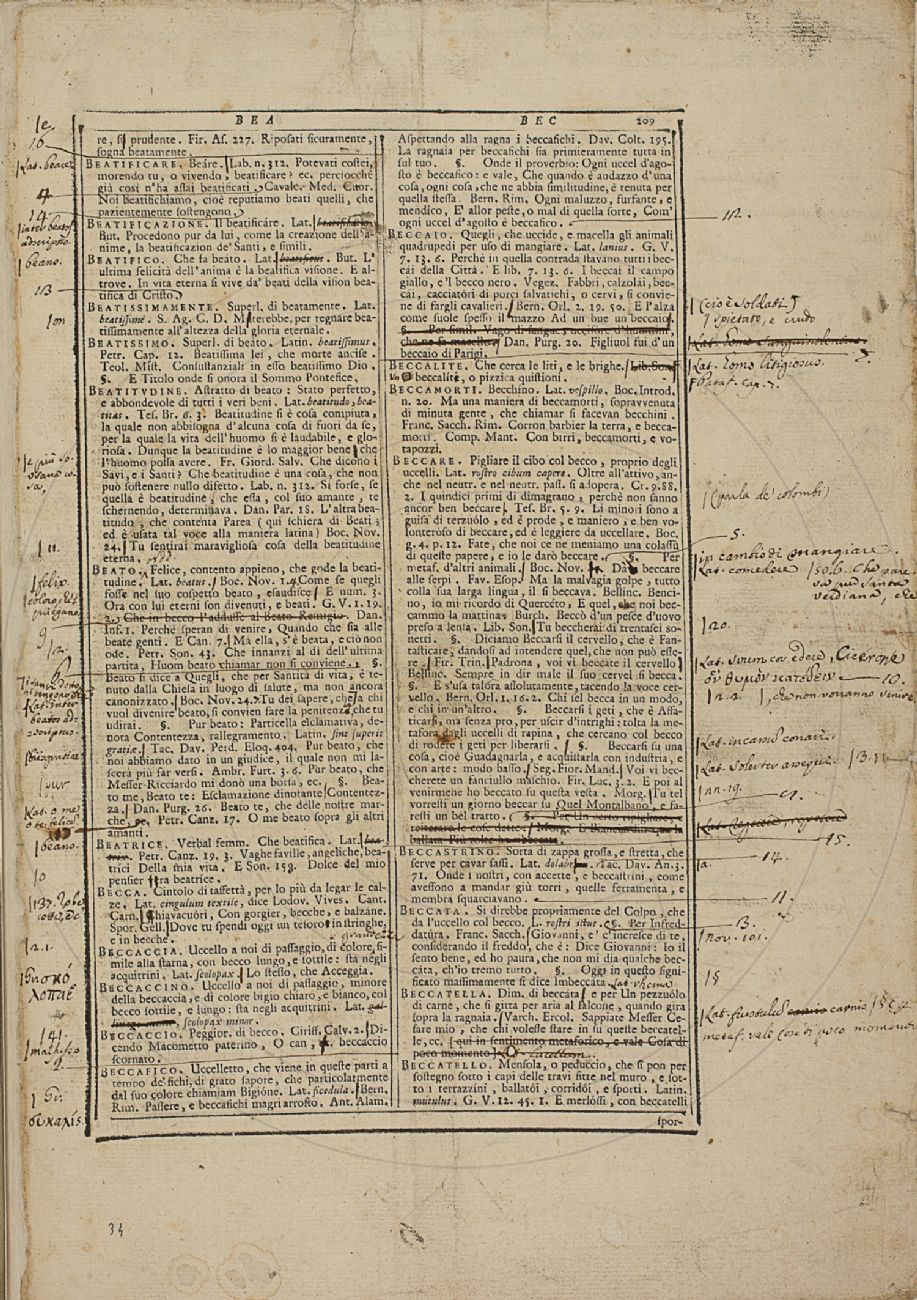 BEA
BEC 209
re, sì prudente. Fir. Af. 227. Riposati sicuramente,
sogna beatamente.
BEATIFICARE. Beáre. Lab. n. 312. Potevati costei,
morendo tu, o vivendo, beatificare? ec. perciocchè
già così n'ha assai beatificati. Cavalc. Med. Cuor.
Noi beatifichiamo, cioè reputiamo beati quelli, che
pazientemente sostengono.
BEATIFICAZIONE. Il beatificáre. Lat.
But. Procedono pur da lui, come la creazione dell'a-
nime, la beatificazion de' Santi, e simili.
BEATIFICO. Che fa beato. Lat. beatificus. But. L'
ultima felicità dell'anima è la beatifica visione. E al-
trove. In vita eterna si vive da' beati della vision bea-
tifica di Cristo.
BEATISSIMAMENTE. Superl. di beatamente. Lat.
beatissimè. S. Ag. C. D. Misterebbe, per regnare bea-
tissimamente all'altezza della gloria eternale.
BEATISSIMO. Superl. di beáto. Latin. beatissimus.
Petr. Cap. 12. Beatissima lei, che morte ancise.
Teol. Mist. Consustanziali in esso beatissimo Dio.
§. E Titolo onde s'onora il Sommo Pontefice.
BEATITUDINE. Astratto di beato: Stato perfetto,
e abbondevole di tutti i veri beni. Lat. beatitudo, bea-
titas. Tes. Br. 6. 3. Beatitudine si è cosa compiuta,
la quale non abbisogna d'alcuna cosa di fuori da se,
per la quale la vita dell'huomo si è laudabile, e glo-
riosa. Dunque la beatitudine è lo maggior bene, che
l'huomo possa avere. Fr. Giord. Salv. Che dicono i
Savi, e i Santi? Che beatitudine è una cosa, che non
può sostenere nullo difetto. Lab. n. 312. Si forse, se
quella è beatitudine, che essa, col suo amante, te
schernendo, determinava. Dan. Par. 18. L'altra bea-
titudo, che contenta Parea (qui schiera di Beati;
ed è usata tal voce alla maniera latina) Boc. Nov.
24. Tu sentirai maravigliosa cosa della beatitudine
eterna.
BEATO. Felice, contento appieno, che gode la beati-
tudine. Lat. beatus. Boc. Nov. 1. 4. Come se quegli
fosse nel suo cospetto beato, esaudisce. E num. 3.
Ora con lui eterni son divenuti, e beati. G. V. 1. 19.
2. Che in becco l'addusse al Beato Remigio. Dan.
Inf. 1. Perchè speran di venire, Quando che sia alle
beate genti. E Can. 7. Ma ella, s'è beata, e ciò non
ode. Petr. Son. 43. Che innanzi al dì dell'ultima
partita, Huom beato chiamar non si conviene. §.
Beato si dice a Quegli, che per Santità di vita, è te-
nuto dalla Chiesa in luogo di salute, ma non ancora
canonizzato. Boc. Nov. 24. 7. Tu dei sapere, che chi
vuol divenire beato, si convien fare la penitenza, che tu
udirai. §. Pur beato: Particella esclamativa, de-
nota Contentezza, rallegramento. Latin. sint superis
gratiæ. Tac. Dav. Perd. Eloq. 404. Pur beato, che
noi abbiamo dato in un giudice, il quale non mi la-
scerà più far versi. Ambr. Furt. 3. 6. Pur beato, che
Messer Ricciardo mi donò una borsa, ec. §. Bea-
to me, Beato te: Esclamazione dinotante Contentez-
za. Dan. Purg. 26. Beato te, che delle nostre mar-
che, ec. Petr. Canz. 17. O me beato sopra gli altri
amanti.
BEATRICE. Verbal femm. Che beatifica. Lat.
Petr. Canz. 19. 3. Vaghe faville, angeliche, bea-
trici Della mia vita. E Son. 153. Dolce del mio
pensier beatrice.
BECCA. Cintolo di taffettà, per lo più da legar le cal-
ze. Lat. cingulum textile, dice Lodov. Vives. Cant.
Carn. Chiavacuóri, Con gorgier, becche, e balzane.
Spor. Gell. Dove tu spendi oggi un tesoro in stringhe,
e in becche.
BECCACCIA. Uccello a noi di passaggio, di colore, si-
mile alla starna, con becco lungo, e sottile: sta negli
acquitrini. Lat. scolopax. Lo stesso, che Acceggia.
BECCACCINO. Uccello a noi di passaggio, minore
della beccaccia, e di colore bigio chiaro, e bianco, col
becco sottile, e lungo: sta negli acquitrini. Lat.
scolopax minor.
BECCACCIO. Peggior. di becco. Ciriff. Calv. 2. Di-
cendo Macometto paterino, O can, beccaccio
scornato.
BECCAFICO. Uccelletto, che viene in queste parti a
tempo de' fichi, di grato sapore, che particolarmente
dal suo colore chiamiam Bigióne. Lat. ficedula. Bern.
Rim. Passere, e beccafichi magri arrosto. Ant. Alam.
Aspettando alla ragna i beccafichi. Dav. Colt. 195.
La ragnaia per beccafichi sia primieramente tutta in
sul tuo. §. Onde il proverbio: Ogni uccel d'ago-
sto è beccafico: e vale, Che quando è andazzo d'una
cosa, ogni cosa, che ne abbia similitudine, è tenuta per
quella stessa. Bern. Rim. Ogni maluzzo, furfante, e
mendico, E' allor peste, o mal di quella sorte, Com'
ogni uccel d'agosto è beccafico.
BECCAIO. Quegli, che uccide, e macella gli animali
quadrupedi per uso di mangiare. Lat. lanius. G. V.
7. 13. 6. Perchè in quella contrada stavano tutti i bec-
cái della Città. E lib. 7. 13. 6. I beccai il campo
giallo, e 'l becco nero. Vegez. Fabbri, calzolái, bec-
cái, cacciatóri di porci salvatichi, o cervi, si convie-
ne di fargli cavalieri. Bern. Orl. 2. 19. 50. E l'alza
come suole spesso il mazzo Ad un bue un beccaio.
§. Per simil. Vago di sangue, uccisore d'huomini,
che ne fa macello. Dan. Purg. 20. Figliuol fui d'un
beccaio di Parigi.
BECCALITE. Che cerca le liti, e le brighe.
beccalite, o pizzica quistioni.
BECCAMORTI. Becchino. Lat. vespillo. Boc. Introd.
n. 20. Ma una maniera di beccamorti, sopravvenuta
di minuta gente, che chiamar si facevan becchini.
Franc. Sacch. Rim. Corron barbier la terra, e becca-
morti. Comp. Mant. Con birri, beccamorti, e vo-
tapozzi.
BECCARE. Pigliare il cibo col becco, proprio degli
uccelli. Lat. rostro cibum capere. Oltre all'attivo, an-
che nel neutr. e nel neutr. pass. si adopera. Cr. 9. 88.
2. I quindici primi dì dimagrano, perchè non sanno
ancor ben beccare. Tes. Br. 5. 9. Li minori sono a
guisa di terzuólo, ed è prode, e maniero, e ben vo-
lonteroso di beccare, ed è leggiere da uccellare. Boc.
g. 4. p. 12. Fate, che noi ce ne meniamo una colassù
di queste papere, e io le darò beccare. §. Per
metaf. d'altri animali. Boc. Nov. Da beccare
alle serpi. Fav. Esop. Ma la malvagia golpe, tutto
colla sua larga lingua, il si beccava. Bellinc. Benci-
no, io mi ricordo di Quercéto, E quel, che noi bec-
cammo la mattina. Burch. Beccò d'un pesce d'uovo
preso a lenta. Lib. Son. Tu beccherai di trentasei so-
netti. §. Diciamo Beccarsi il cervello, che è Fan-
tasticare, dandosi ad intendere quel, che non può esse-
re. Fir. Trin. Padrona, voi vi beccate il cervello.
Bellinc. Sempre in dir male il suo cervel si becca.
§. E s'usa talora assolutamente, tacendo la voce cer-
vello. Bern. Orl. 1. 16. 2. Chi sel becca in un modo,
e chi in un'altro. §. Beccarsi i geti, che è Affa-
ticarsi, ma senza pro, per uscir d'intrighi: tolta la me-
tafora dagli uccelli di rapina, che cercano col becco
di rodere i geti per liberarsi. §. Beccarsi su una
cosa, cioè Guadagnarla, e acquistarla con industria, e
con arte: modo basso. Seg. Fior. Mand. Voi vi bec-
cherete un fanciullo maschio. Fir. Luc. 3. 2. E poi al
venirmene ho beccato su questa vesta. Morg. Tu tel
vorresti un giorno beccar su Quel Montalbano, e fa-
resti un bel tratto. §. Per Un certo ripigliare, e
reiterare le cose dette. Morg. E Biancardin per la
ballata Più volte
BECCASTRINO. Sorta di zappa grossa, e stretta, che
serve per cavar sassi. Lat. dolabra. Tac. Dav. An. 3.
71. Onde i nostri, con accette, e beccastrini, come
avessono a mandar giù torri, quelle ferramenta, e
membra squarciavano.
BECCATA. Si direbbe propriamente del Colpo, che
da l'uccello col becco. L. rostri ictus. §. Per Infred-
datura. Franc. Sacch. Giovanni, e' c'incresce di te,
considerando il freddo, che è: Dice Giovanni: Io il
sento bene, ed ho paura, che non mi dia qualche bec-
cáta, ch'io tremo tutto. §. Oggi in questo signi-
ficato massimamente si dice Imbeccáta.
BECCATELLA. Dim. di beccáta: e per Un pezzuólo
di carne, che si gitta per aria al falcone, quando gira
sopra la ragnaia. Varch. Ercol. Sappiate Messer Ce-
sare mio, che chi volesse stare in su queste beccatel-
le, ec. qui in sentimento metaforico, e vale Cosa di
poco momento
BECCATELLO. Mensola, o peduccio, che si pon per
sostegno sotto i capi delle travi fitte nel muro, e sot-
to i terrazzini, ballatói, corridói, e sporti. Latin.
mutulus. G. V. 12. 45. 1. E merlóssi, con beccatelli
spor-
16
Lat. beare
4.
14
beano.
113
on
11.
felix
9
pur
beano.
10
2.1.
141.
112.
(cioè soldati)
spietato, e crudo
Lat. homo litigiosus.
(parla de' colombi)
5.
in cambio di mangiare.
Lat. comedere
20.
10.
, che non vonanno venire
13.
14.
15.
11.
13.
nov. 101.
15
34